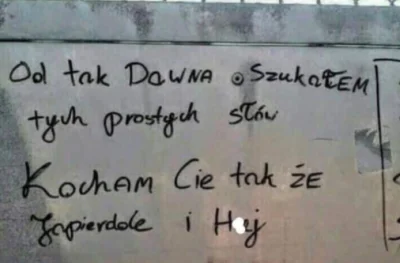 Od tak DawNA SzukałEM
tych prostych słów
KochAM Cie tak żE
Japierdole i Hej